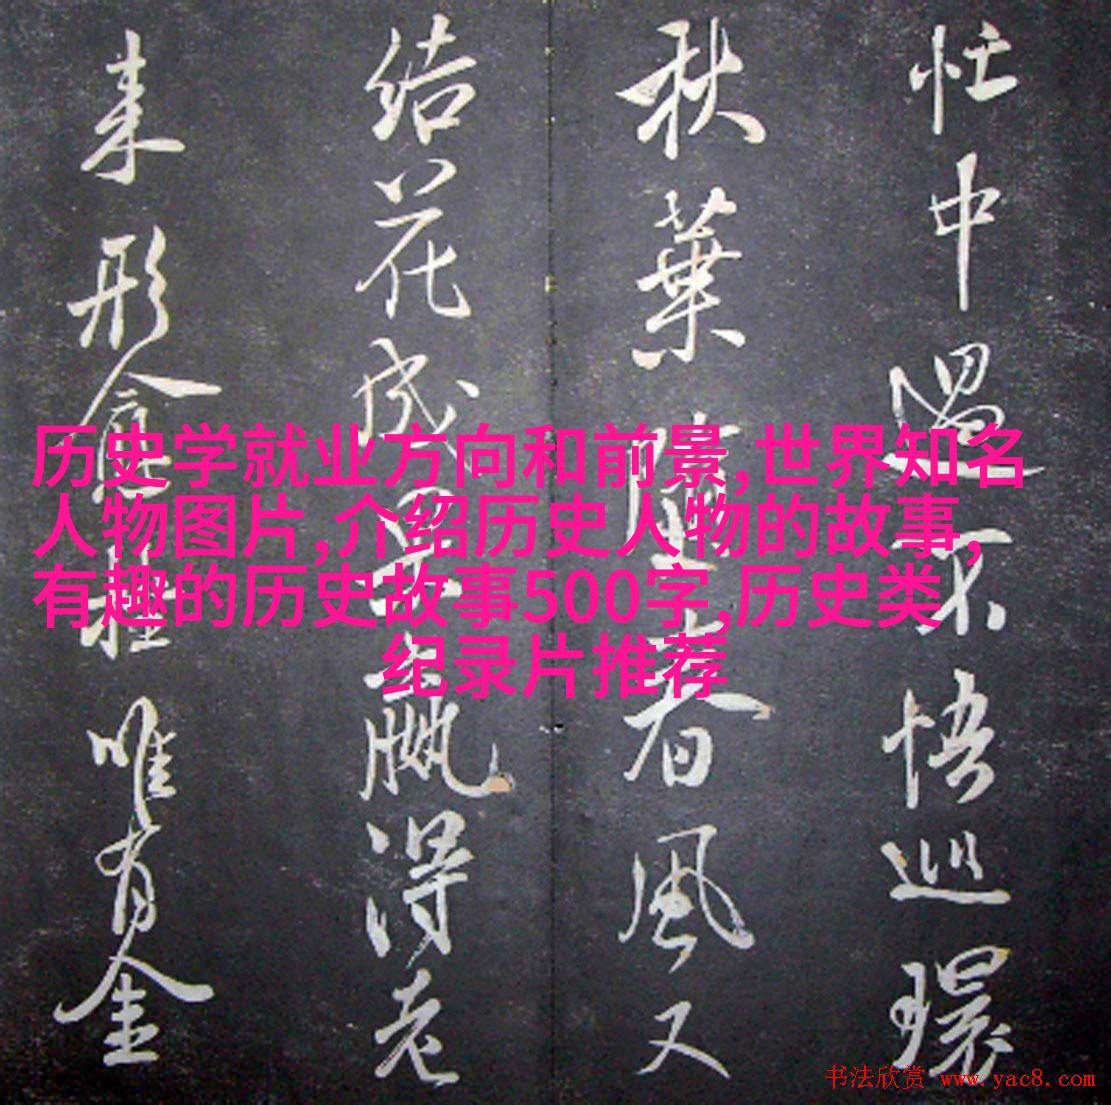 忙中過不悟巡環
秋葉
春風又
结花成
羸得老
来形
唯有金
历史学就业方向和前景,世界知名
人物图片,介绍历史人物的故事,
有趣的历史故事500字,历史类
纪录片推荐
书法欣赏 www.yac8.com